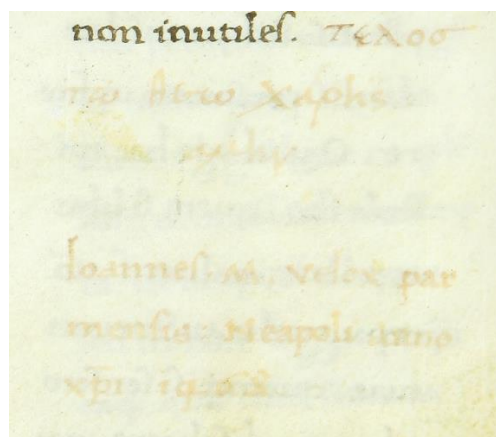 non inutiles. τελοσ
τω θεω χαρηs
αμην
Ioannes. M. Velex par
mensis Neapoli anno
xp̄i